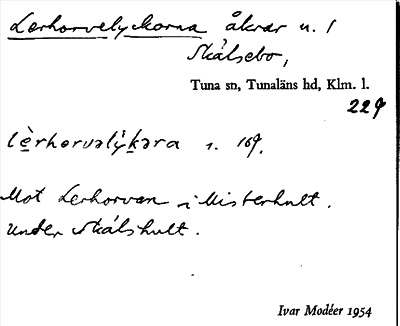 Lerhorvelyckorna åkrar u. /
Skälsebo,
Tuna sn, Tunaläns hd, Klm. l.
229
lèrhorvəlýkəra s. 169.
Mot Lerhorvan i Misterhult.
under Skälshult.
Ivar Modéer 1954